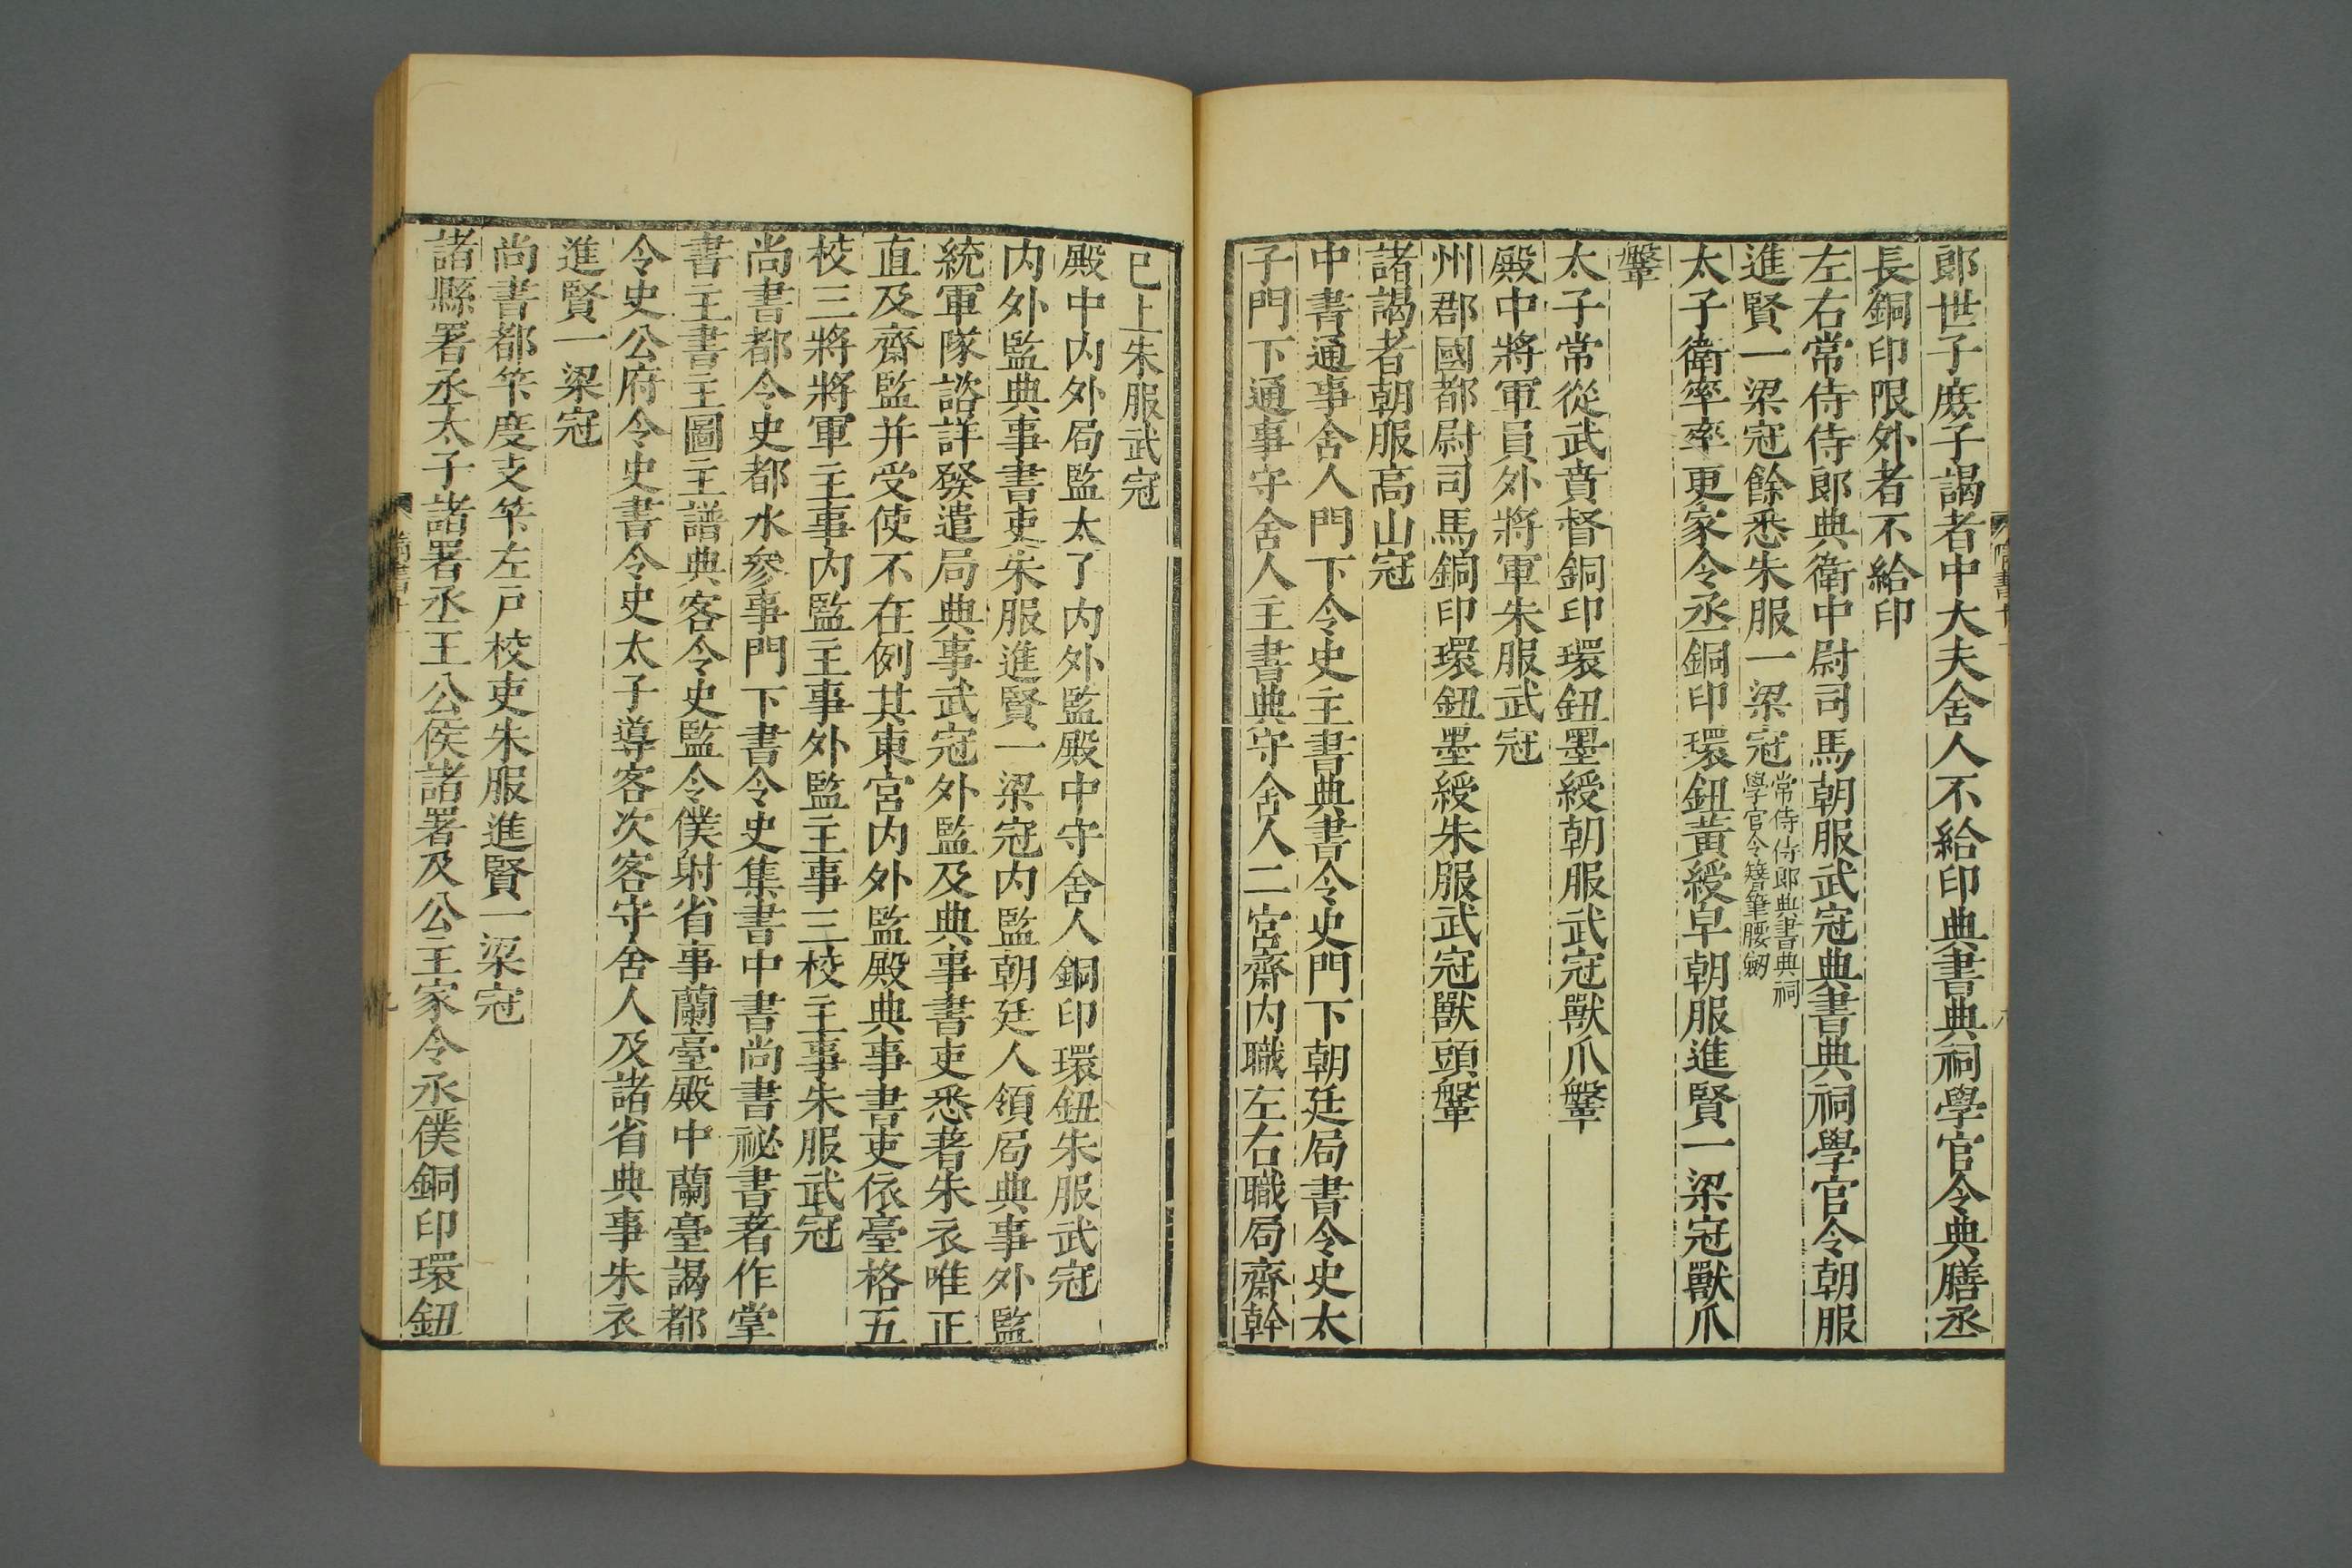 郎世子庶子謁者中大夫舍人不給印典書典祠學官令典膳丞
長銅印限外者不給印
左右常侍侍郎典衛中尉司馬朝服武冠典書典祠學官令朝服
進賢一梁冠餘悉朱服一梁冠常侍侍郎典書典祠學官令簪筆腰劒
太子衛率率更家令丞銅印環鈕黃綬皁朝服進賢一梁冠獸爪
鞶
太子常從武賁督銅印環鈕墨綬朝服武冠獸爪鞶
殿中將軍員外將軍朱服武冠
州郡國都尉司馬銅印環鈕墨綬朱服武冠獸頭鞶
諸謁者朝服高山冠
中書通事舍人門下令史主書典書令史門下朝廷局書令史太
子門下通事守舍人主書典守舍人二宮齋內職左右職局齋幹
已上朱服武冠
殿中內外局監太了內外監殿中守舍人銅印環鈕朱服武冠
內外監典事書吏朱服進賢一梁冠內監朝廷人領局典事外監
統軍隊諮詳發遣局典事武冠外監及典事書吏悉著朱衣唯正
直及齋監并受使不在例其東宮內外監殿典事書吏依臺格五
校三將將軍主事內監主事外監主事三校主事朱服武冠
尚書都令史都水參事門下書令史集書中書尚書祕書著作掌
書主書主圖主譜典客令史監令僕射省事蘭臺殿中蘭臺謁都
令史公府令史書令史太子導客次客守舍人及諸省典事朱衣
進賢一梁冠
尚書都筭度支筭左戶校吏朱服進賢一梁冠
諸縣署丞太子諸署丞王公侯諸署及公主家令丞僕銅印環鈕